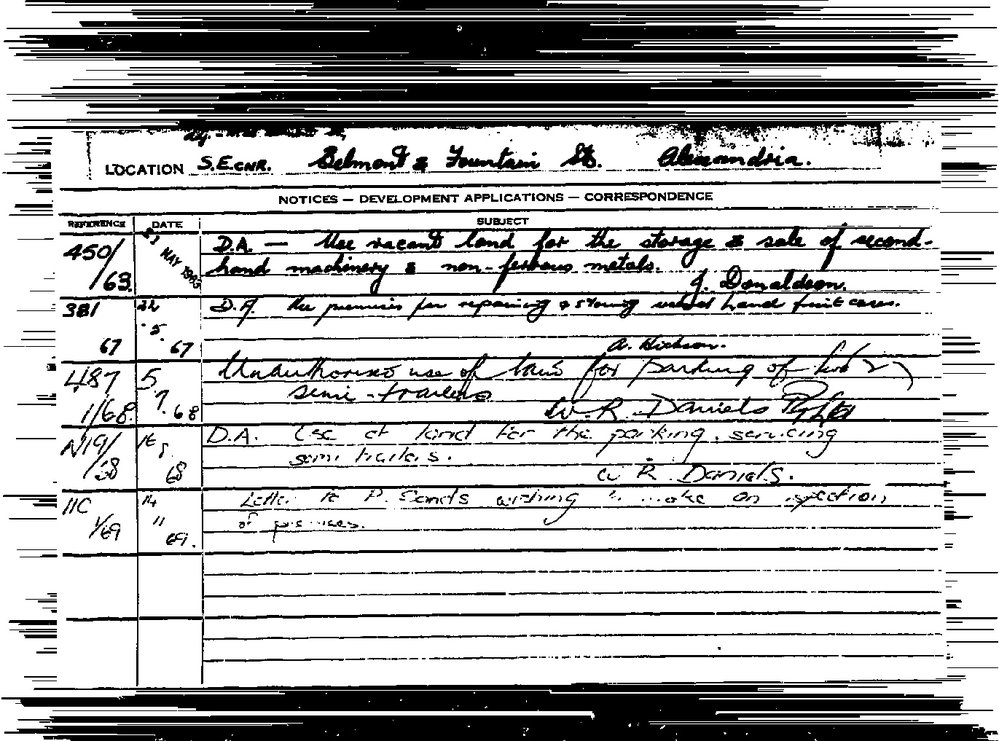 LOCATION S.E.CNR. Belmont & Fountain Sts. Alexandria.
NOTICES — DEVELOPMENT APPLICATIONS — CORRESPONDENCE
REFERENCE DATE SUBJECT
450/63. MAY D.A. — Use vacant land for the storage & sale of second-
hand machinery & non-ferrous metals.
J. Donaldson.
381 22 D.A. Use premises for repairing & storing second hand fruit cases.
67 5. 67 A. Dickson.
487 5 Unauthorised use of land for parking of two 2)
1/68. 7. 68 semi-trailers
W R Daniels
D.A. Use of land for the parking, servicing
68 semi trailers.
W R. Daniels.
11C 14 Letter to P. Sands wishing to make an inspection
1/69 11 69. of premises.